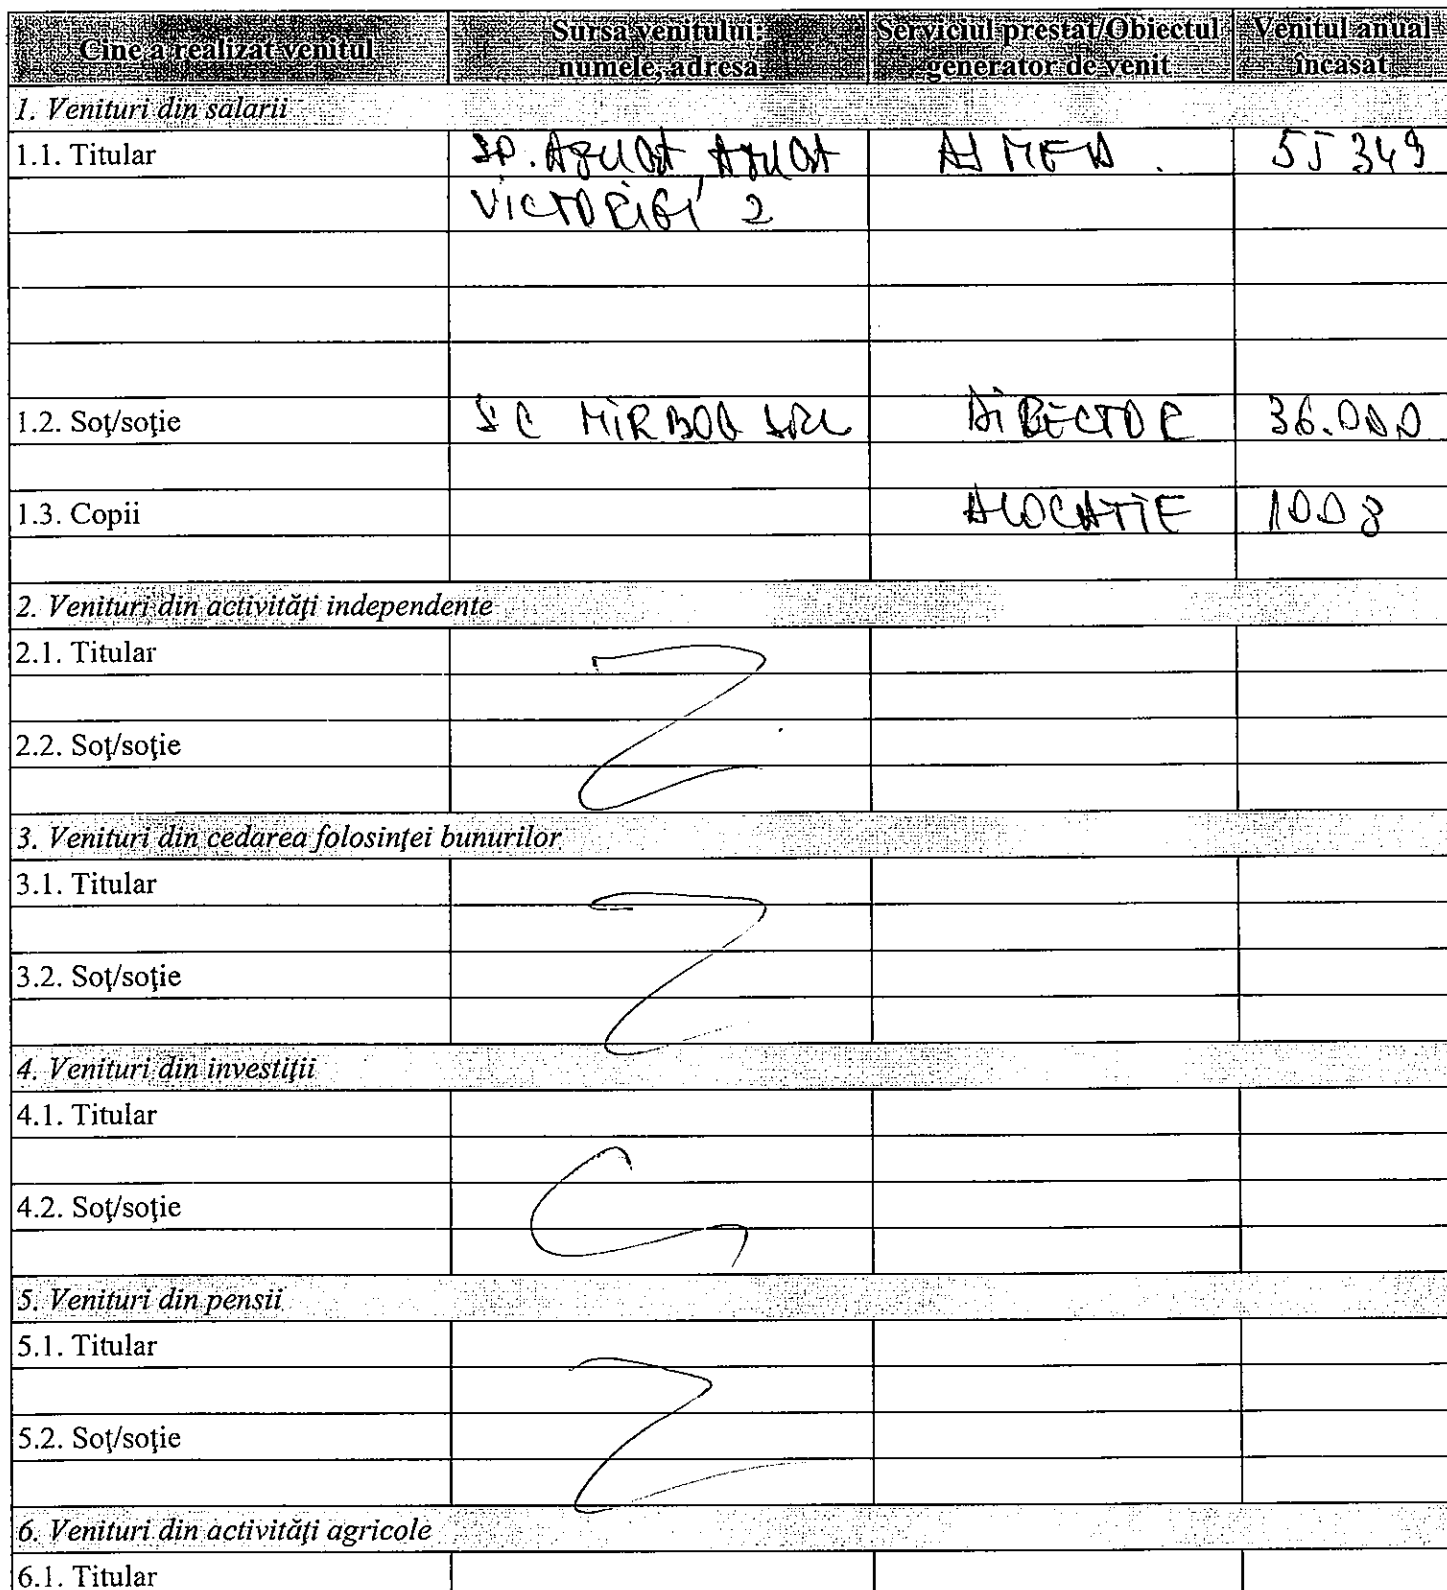 Cine a realizat venitul Sursa venitului: Serviciul prestat/Obiectul Venitul anual
numele, adresa generator de venit încasat
1. Venituri din salarii
1.1. Titular SP. 349
2
1.2. Soţ/soţie SC MIRBOO SRL DIRECTOR 36.000
1.3. Copii ALOCATIE 1008
2. Venituri din activităţi independente
2.1. Titular
2.2. Soţ/soţie
3. Venituri din cedarea folosinţei bunurilor
3.1. Titular
3.2. Soţ/soţie
4. Venituri din investiţii
4.1. Titular
4.2. Soţ/soţie
5. Venituri din pensii
5.1. Titular
5.2. Soţ/soţie
6. Venituri din activităţi agricole
6.1. Titular